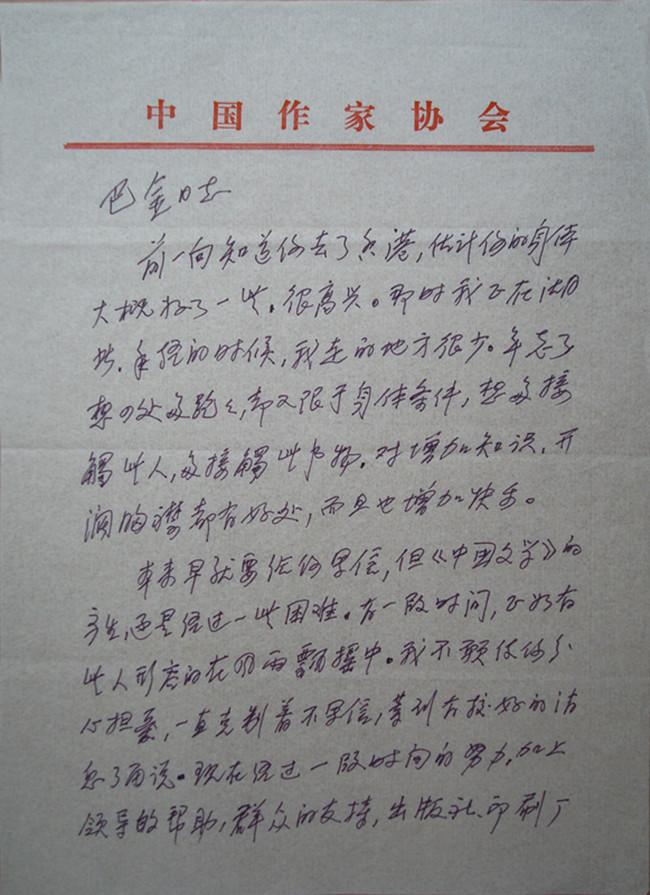 中国作家协会
巴金同志
前一向知道你去了香港，估计你的身体
大概好了一些。很高兴。那时我正在湖北
。年轻的时候，我走的地方很少。年老了
想四处多跑跑，却又限于身体条件，想多接
觸些人，多接觸些事物。对增加知识，开
阔胸襟都有好处，而且也增加快乐。
本来早就要给你写信，但《中国文学》的
，还是经过一些困难。有一段时间，正好有
些人形容的在风雨飘摇中。我不愿使你分
心担忧，一直克制着不写信，等到有较好的消
息了再说。现在经过一段时间的努力，加上
领导的帮助，群众的支持，出版社、印刷厂